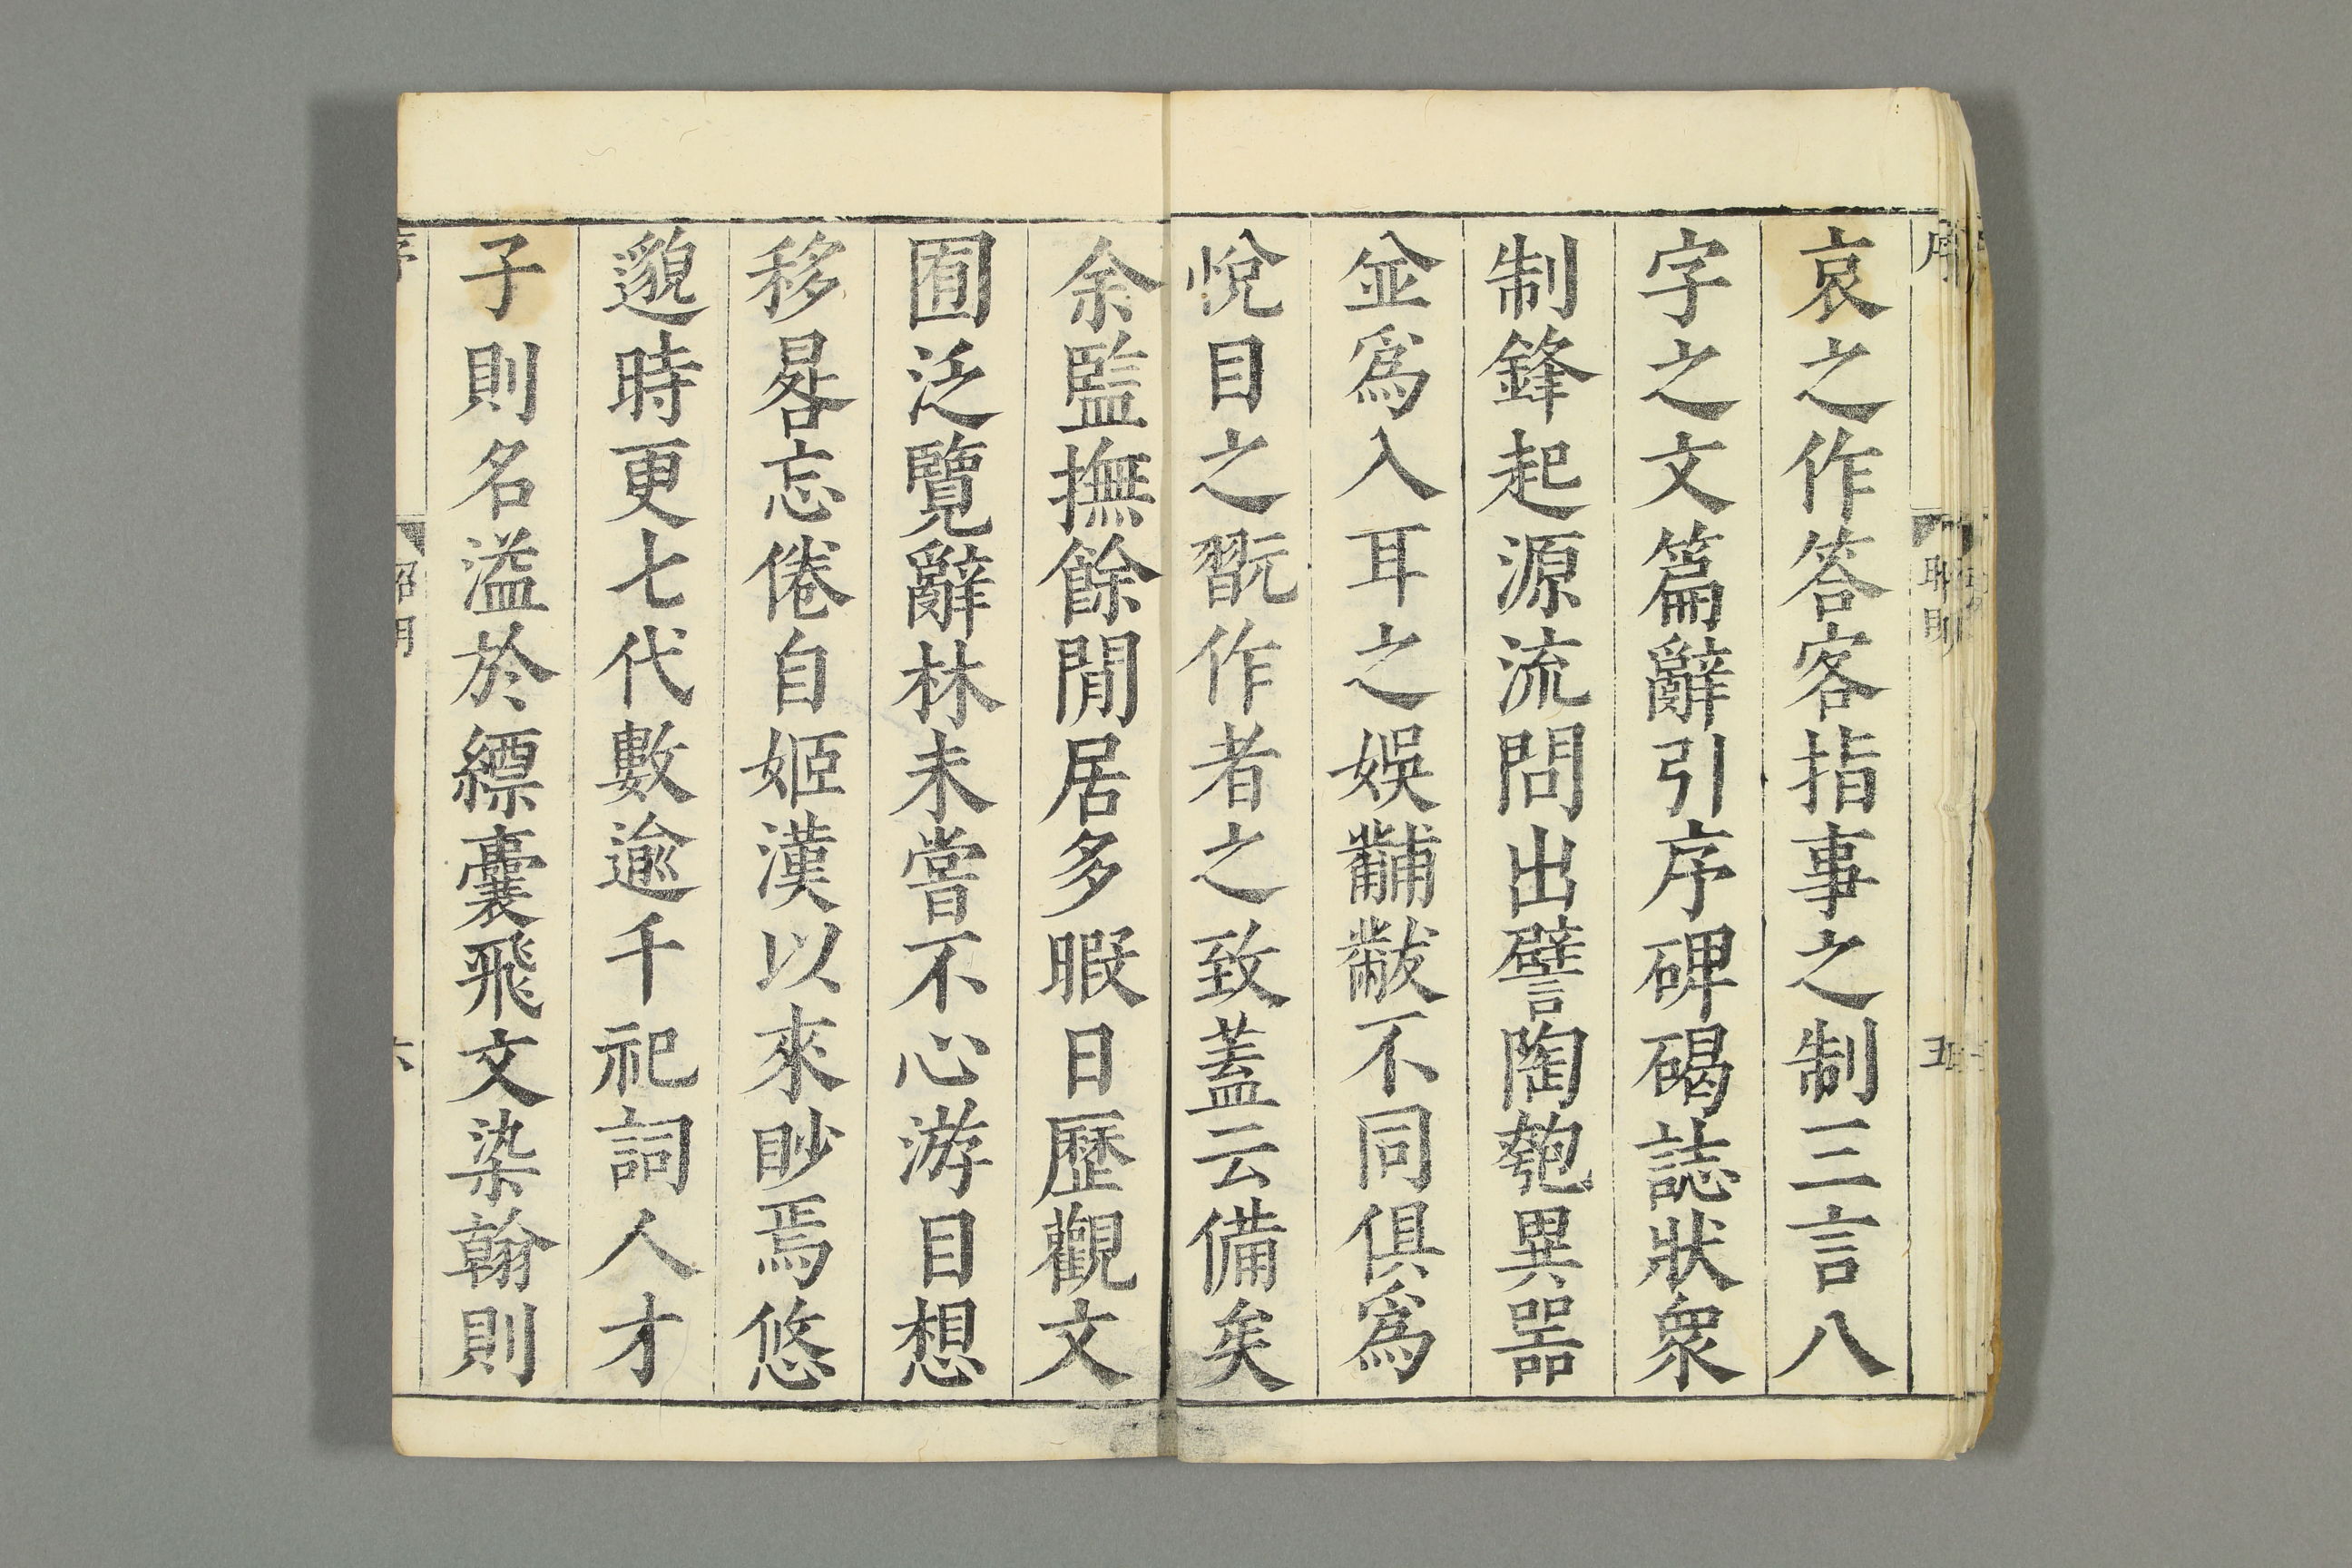 哀之作答客指事之制三言八
字之文篇辭引序碑碣誌狀衆
制鋒起源流間出譬陶匏異器
並爲入耳之娛黼黻不同俱爲
悅目之翫作者之致蓋云備矣
余監撫餘閒居多暇日歷觀文
囿泛覽辭林未嘗不心游目想
移晷忘倦自姬漢以來眇焉悠
邈時更七代數逾千祀詞人才
子則名溢於縹囊飛文染翰則